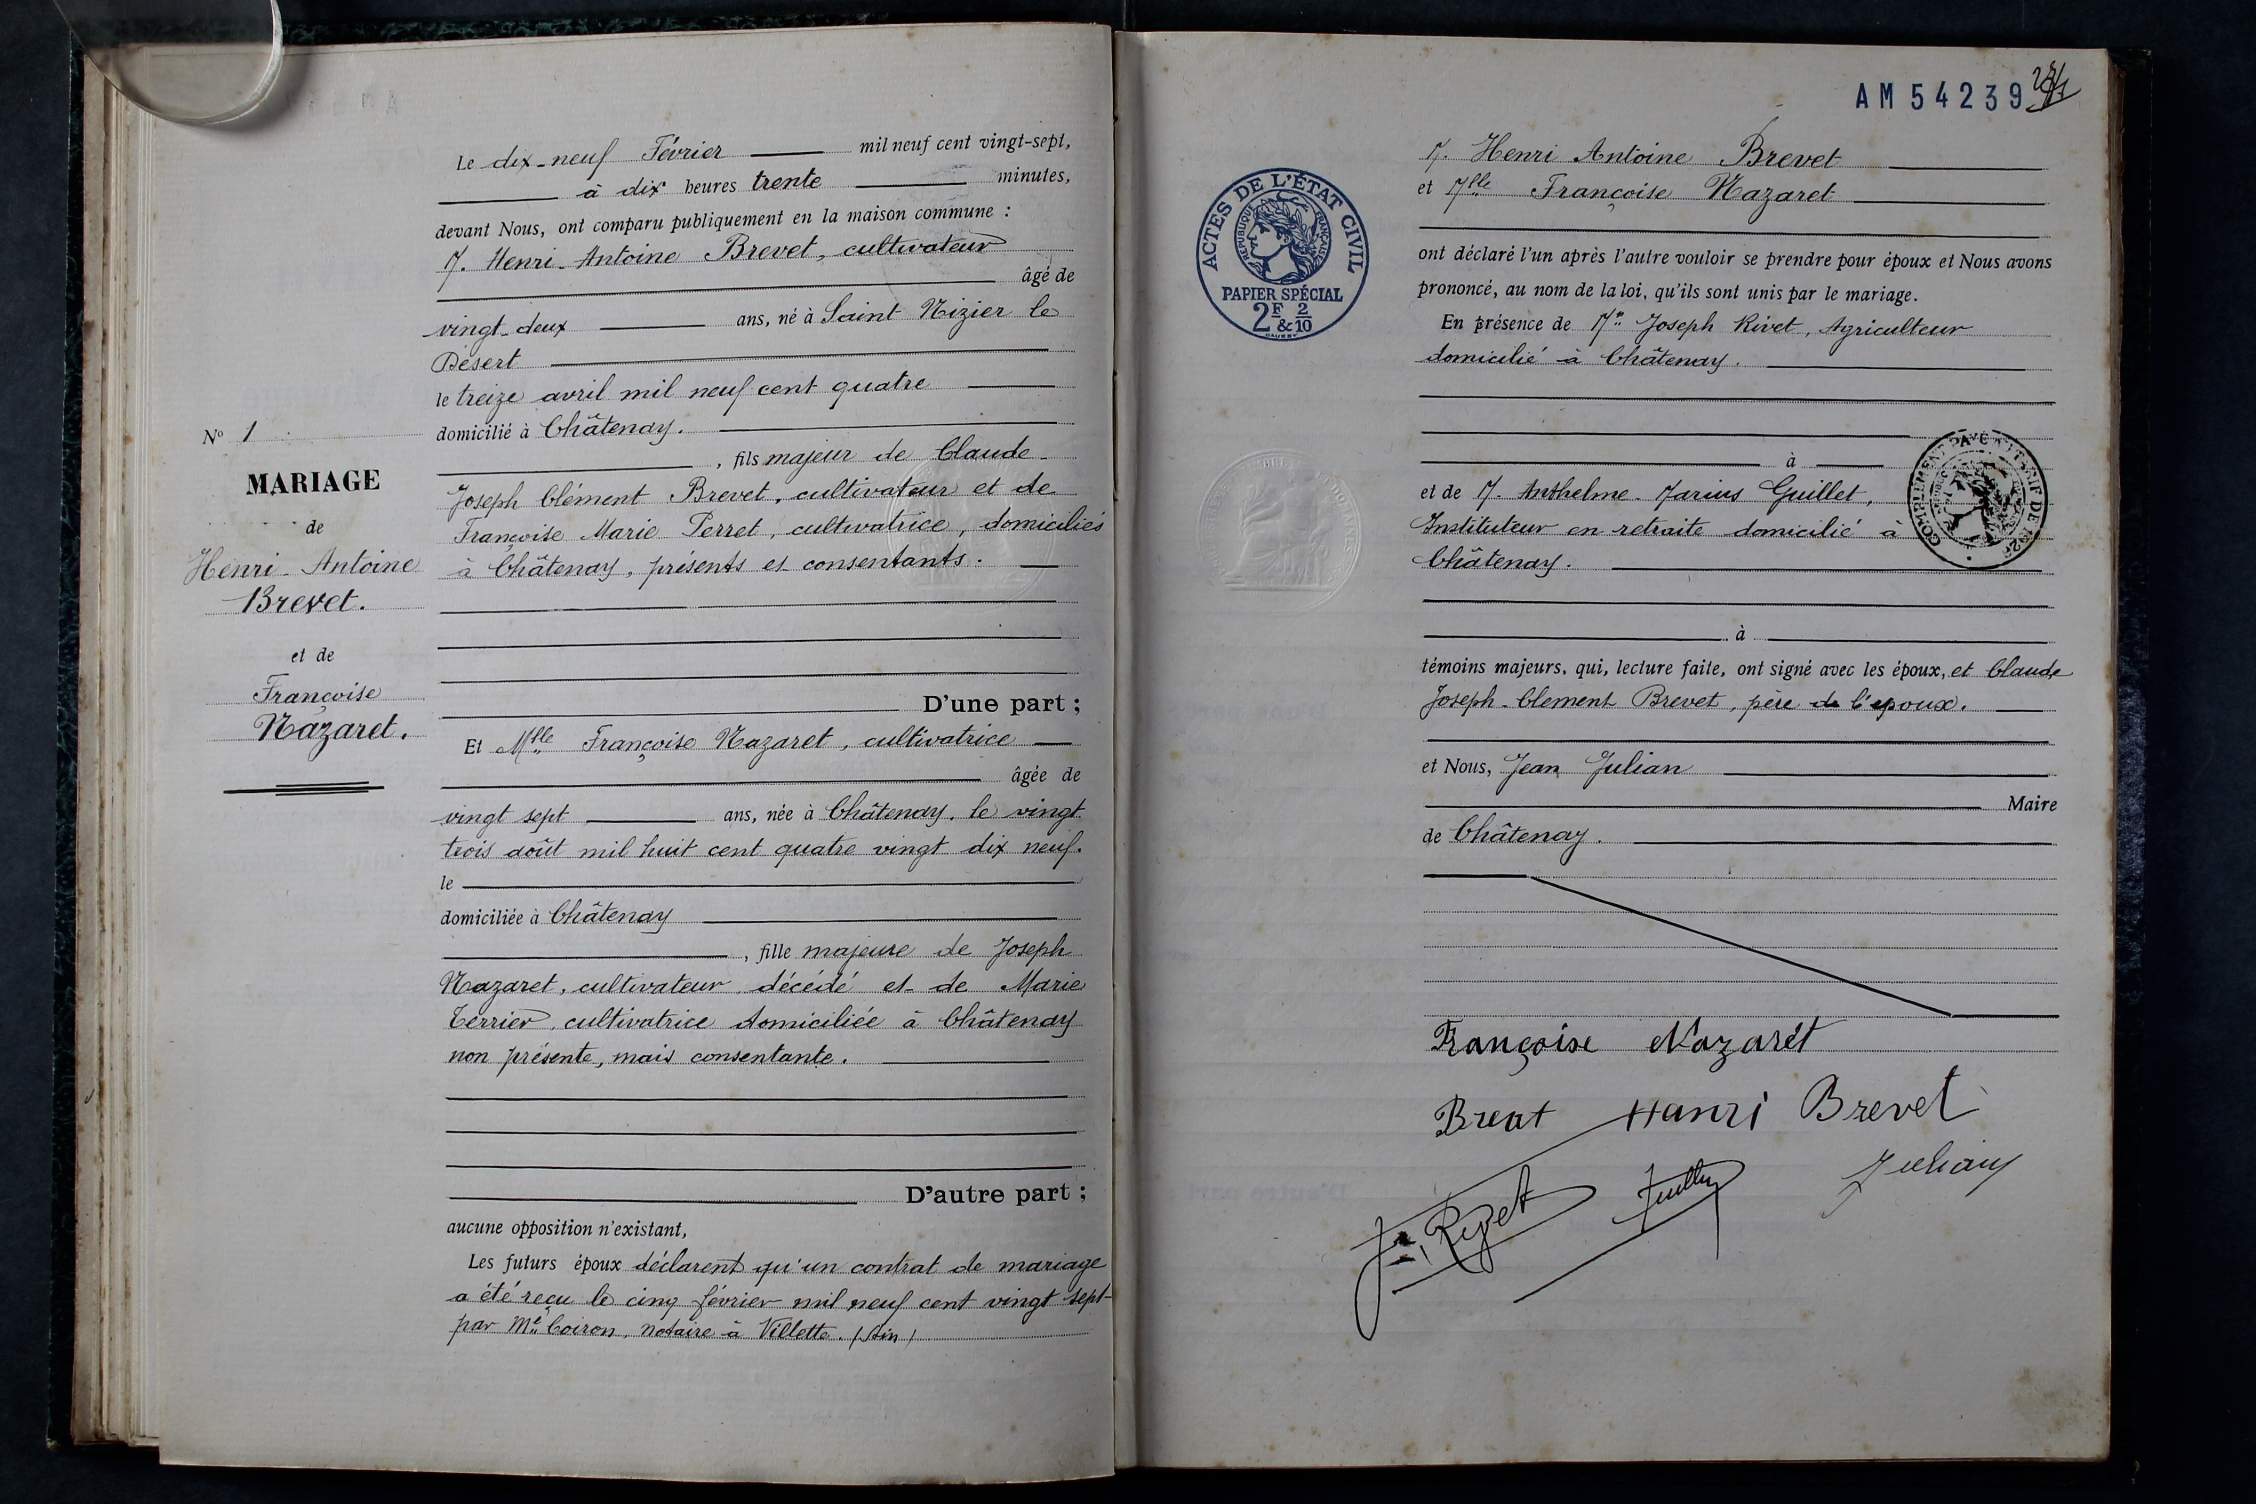 Le dix-neuf Février mil neuf cent vingt-sept,
à dix heures trente minutes,
devant Nous, ont comparu publiquement en la maison commune :
M. Henri-Antoine Brevet, cultivateur
âgé de
vingt-deux ans, né à Saint Nizier le
Désert
le treize avril mil neuf cent quatre
domicilié à Châtenay.
, fils majeur de Claude-
Joseph Clément Brevet, cultivateur et de
Françoise Marie Perret, cultivatrice, domiciliés
à Châtenay, présents et consentants.
N° 1
MARIAGE
de
Henri-Antoine
Brevet.
et de
Françoise
Nazaret.
D'une part ;
Et Mlle Françoise Nazaret, cultivatrice
âgée de
vingt sept ans, née à Châtenay, le vingt
trois août mil huit cent quatre vingt dix neuf.
le
domiciliée à Châtenay
, fille majeure de Joseph
Nazaret, cultivateur décédé et de Marie
Terrier, cultivatrice domiciliée à Châtenay
non présente, mais consentante.
D'autre part ;
aucune opposition n'existant,
Les futurs époux déclarent qu'un contrat de mariage
a été reçu le cinq février mil neuf cent vingt sept
par Me Coiron, notaire à Villette. (Ain)
AM 54239
ACTES DE L'ÉTAT CIVIL
RÉPUBLIQUE FRANÇAISE
PAPIER SPÉCIAL
2F & 2/10
M. Henri Antoine Brevet
et Mlle Françoise Nazaret
ont déclaré l'un après l'autre vouloir se prendre pour époux et Nous avons
prononcé, au nom de la loi, qu'ils sont unis par le mariage.
En présence de Mr Joseph Rivet, Agriculteur
domicilié à Châtenay.
à
et de M. Anthelme-Marius Guillet,
Instituteur en retraite domicilié à
Châtenay.
à
témoins majeurs, qui, lecture faite, ont signé avec les époux, et Claude
Joseph-Clement Brevet, père de l'époux.
et Nous, Jean Julian
Maire
de Châtenay.
Françoise Nazarét
Henri Brevet